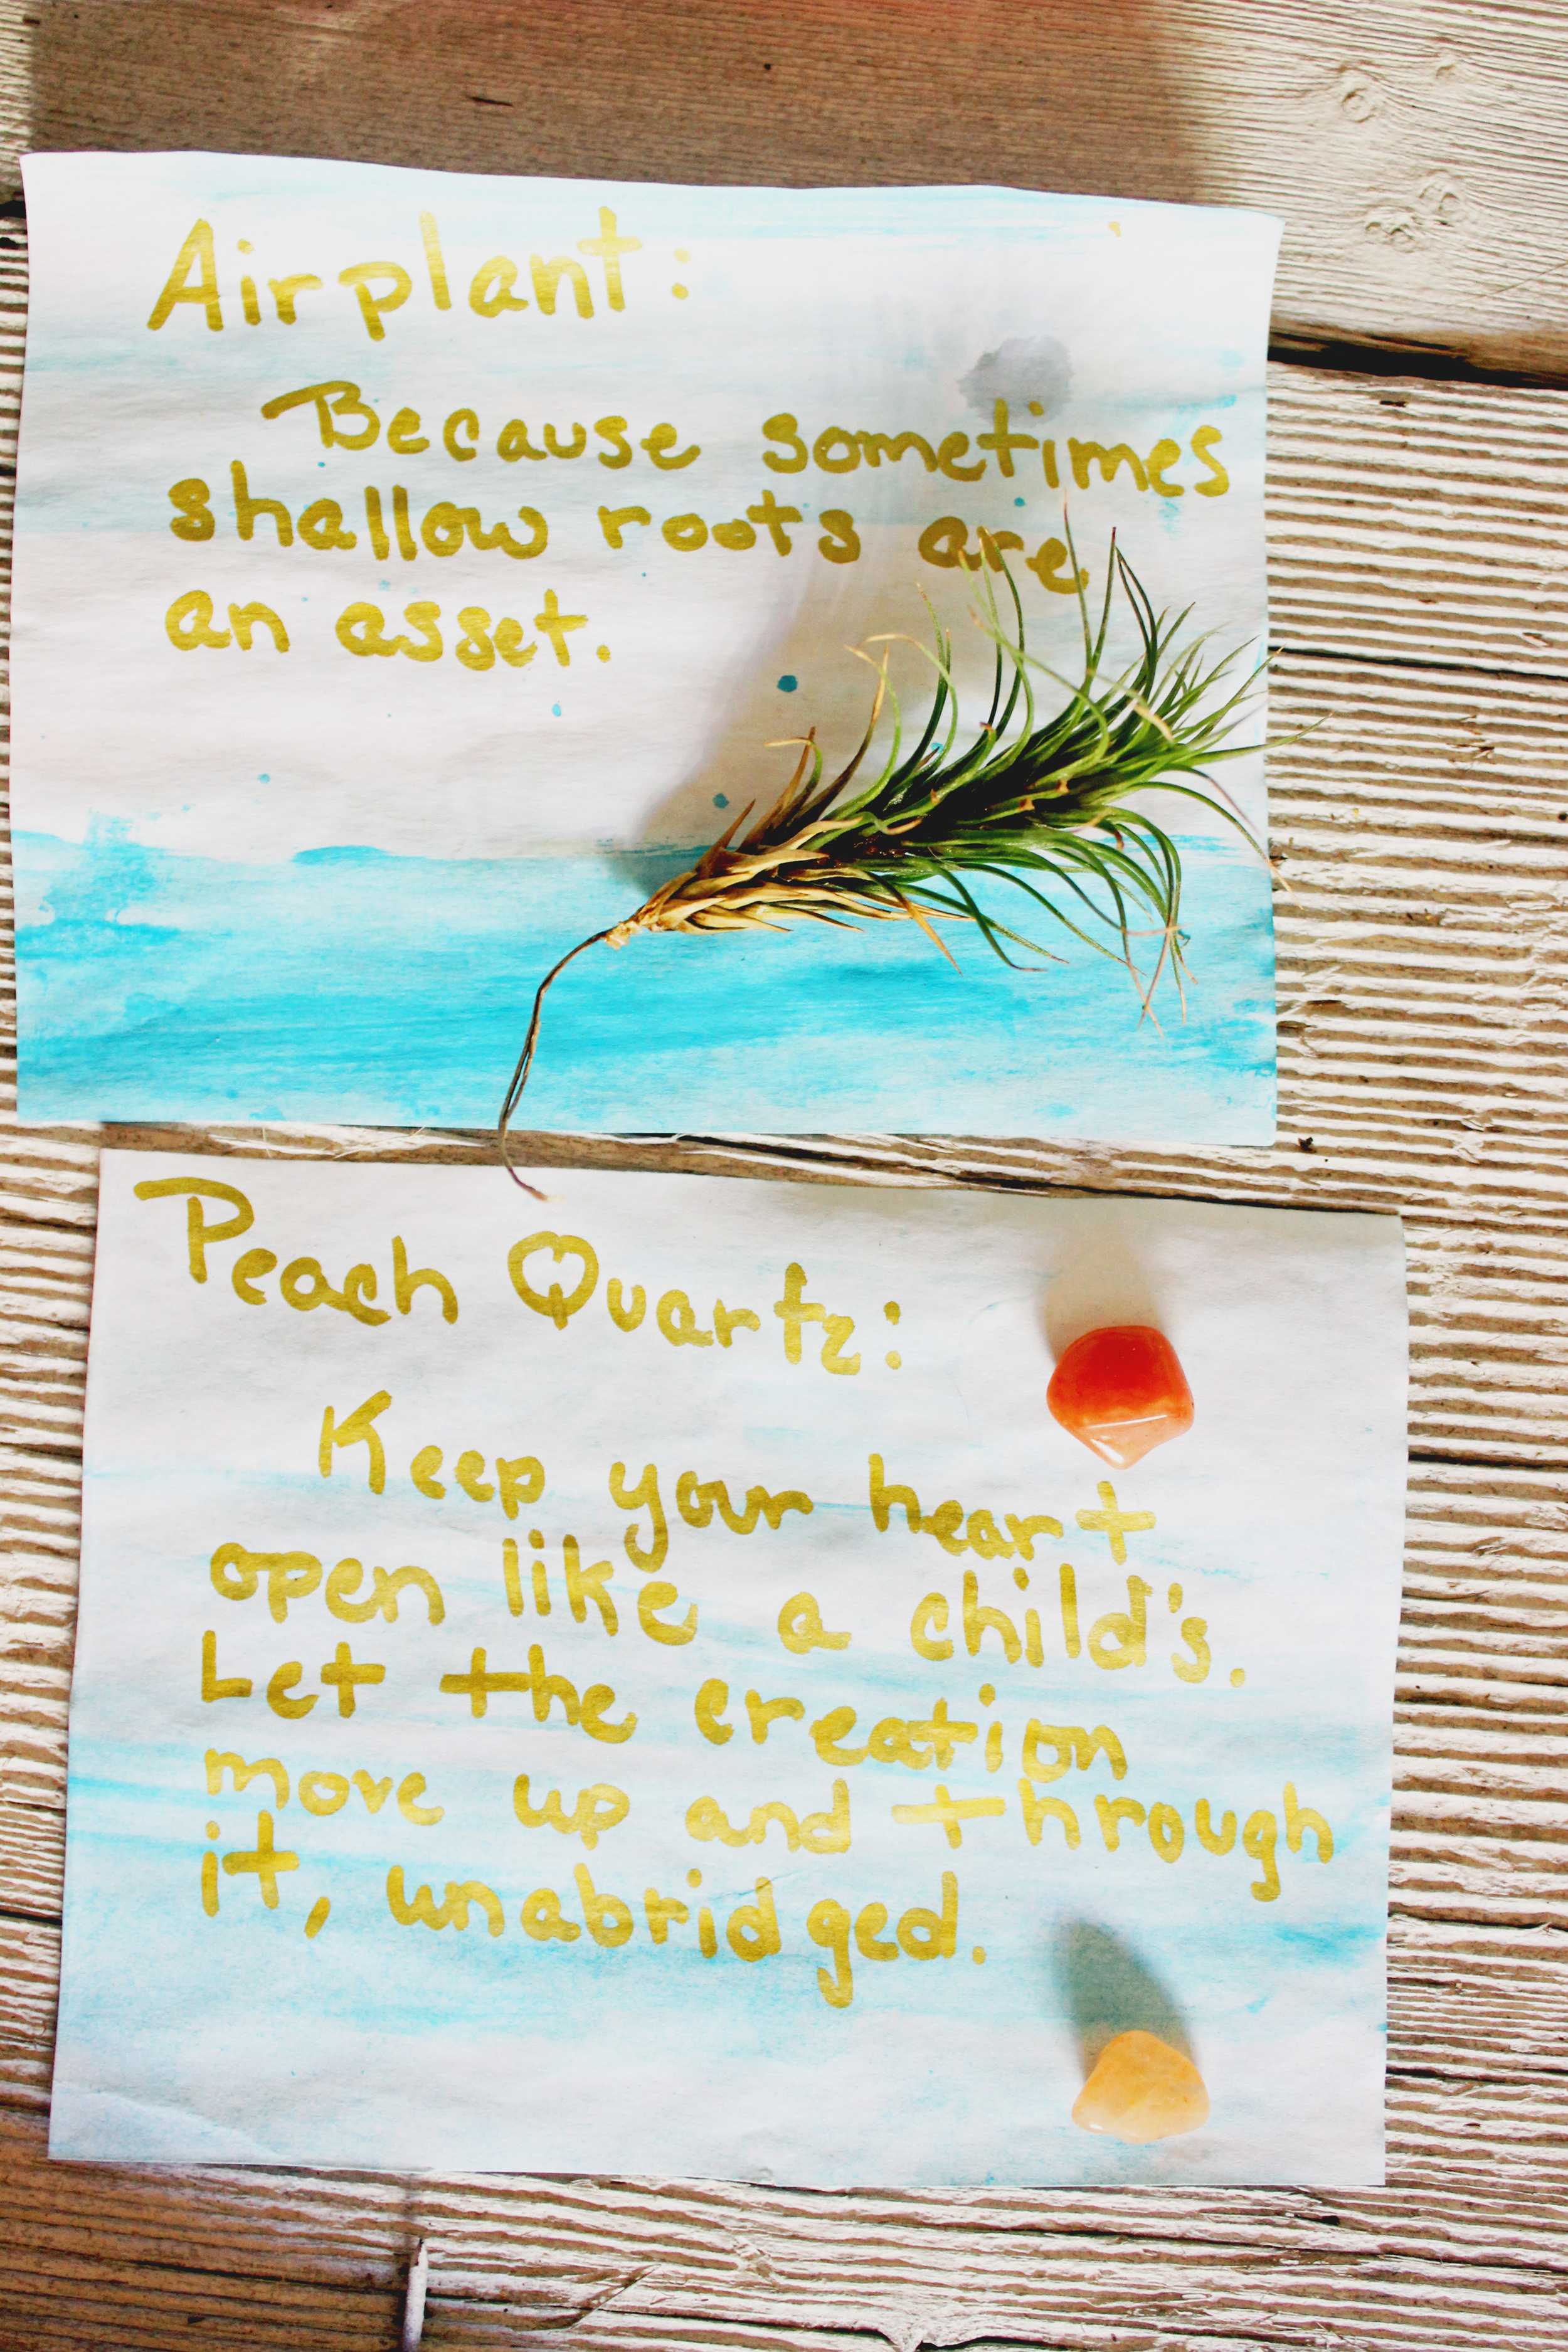 Airplant:
Because sometimes
shallow roots are
an asset.
Peach Quartz:
Keep your heart
open like a child's.
Let the creation
move up and through
it, unabridged.